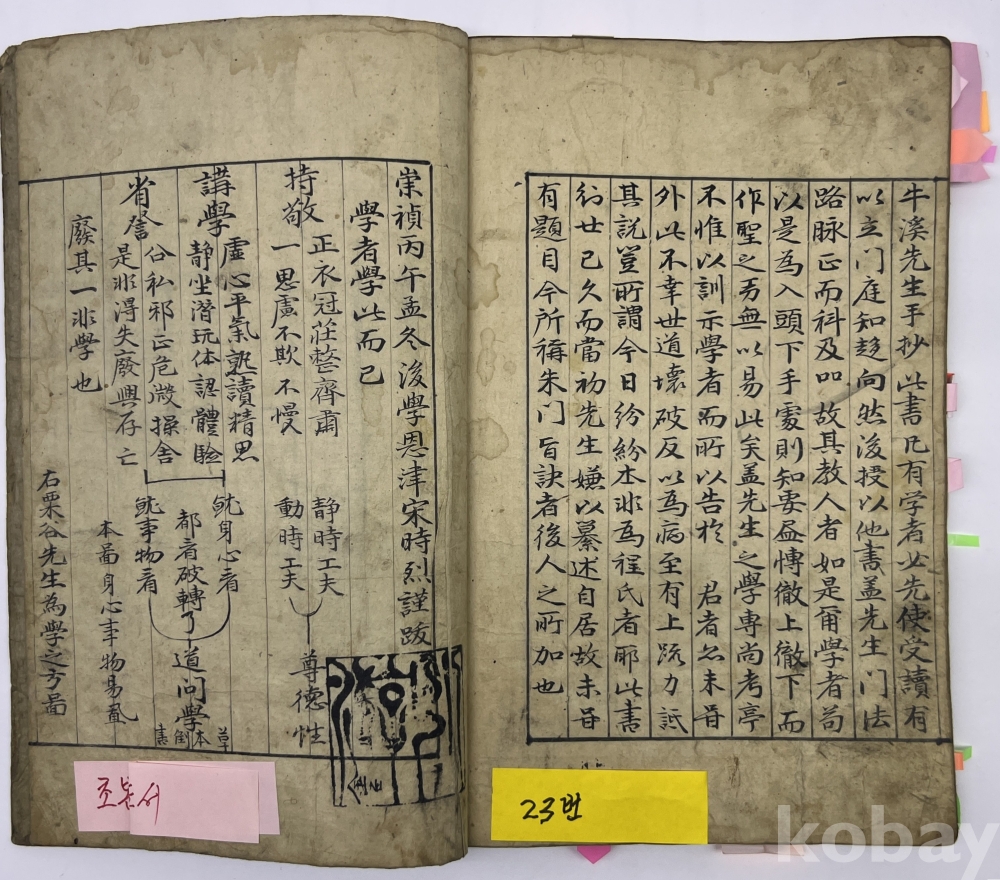 牛溪先生手抄此書凡有学者必先使受讀有
以立門庭知趍向然後授以他書盖先生門法
路脉正而科及品故其教人者如是甭學者苟
以是為入頭下手處則知要益博徹上徹下而
作聖之功無以易此矣盖先生之學專尚考亭
不惟以訓示學者而所以告於 君者亦未甞
外此不幸世道壞破反以為病至有上疏力詆
其說豈所謂今日紛紛本非為程氏者耶此書
行世已久而當初先生嫌以纂述自居故未甞
有題目今所稱朱门旨訣者後人之所加也
崇禎丙午孟冬後學恩津宋時烈謹跋
學者學此而已
持敬 正衣冠莊整齊肅 静時工夫
一思慮不欺不慢 動時工夫
尊德性
講學 虛心平氣熟讀精思
静坐潛玩体認體驗
就身心看
都看破轉了 道问學
省詧 公私邪正危微操舍
是非得失廢興存亡
就事物看
草本倒書
本啚身心事物易置
廢其一非學也
右栗谷先生為學之方啚
조문서
23번
kobay